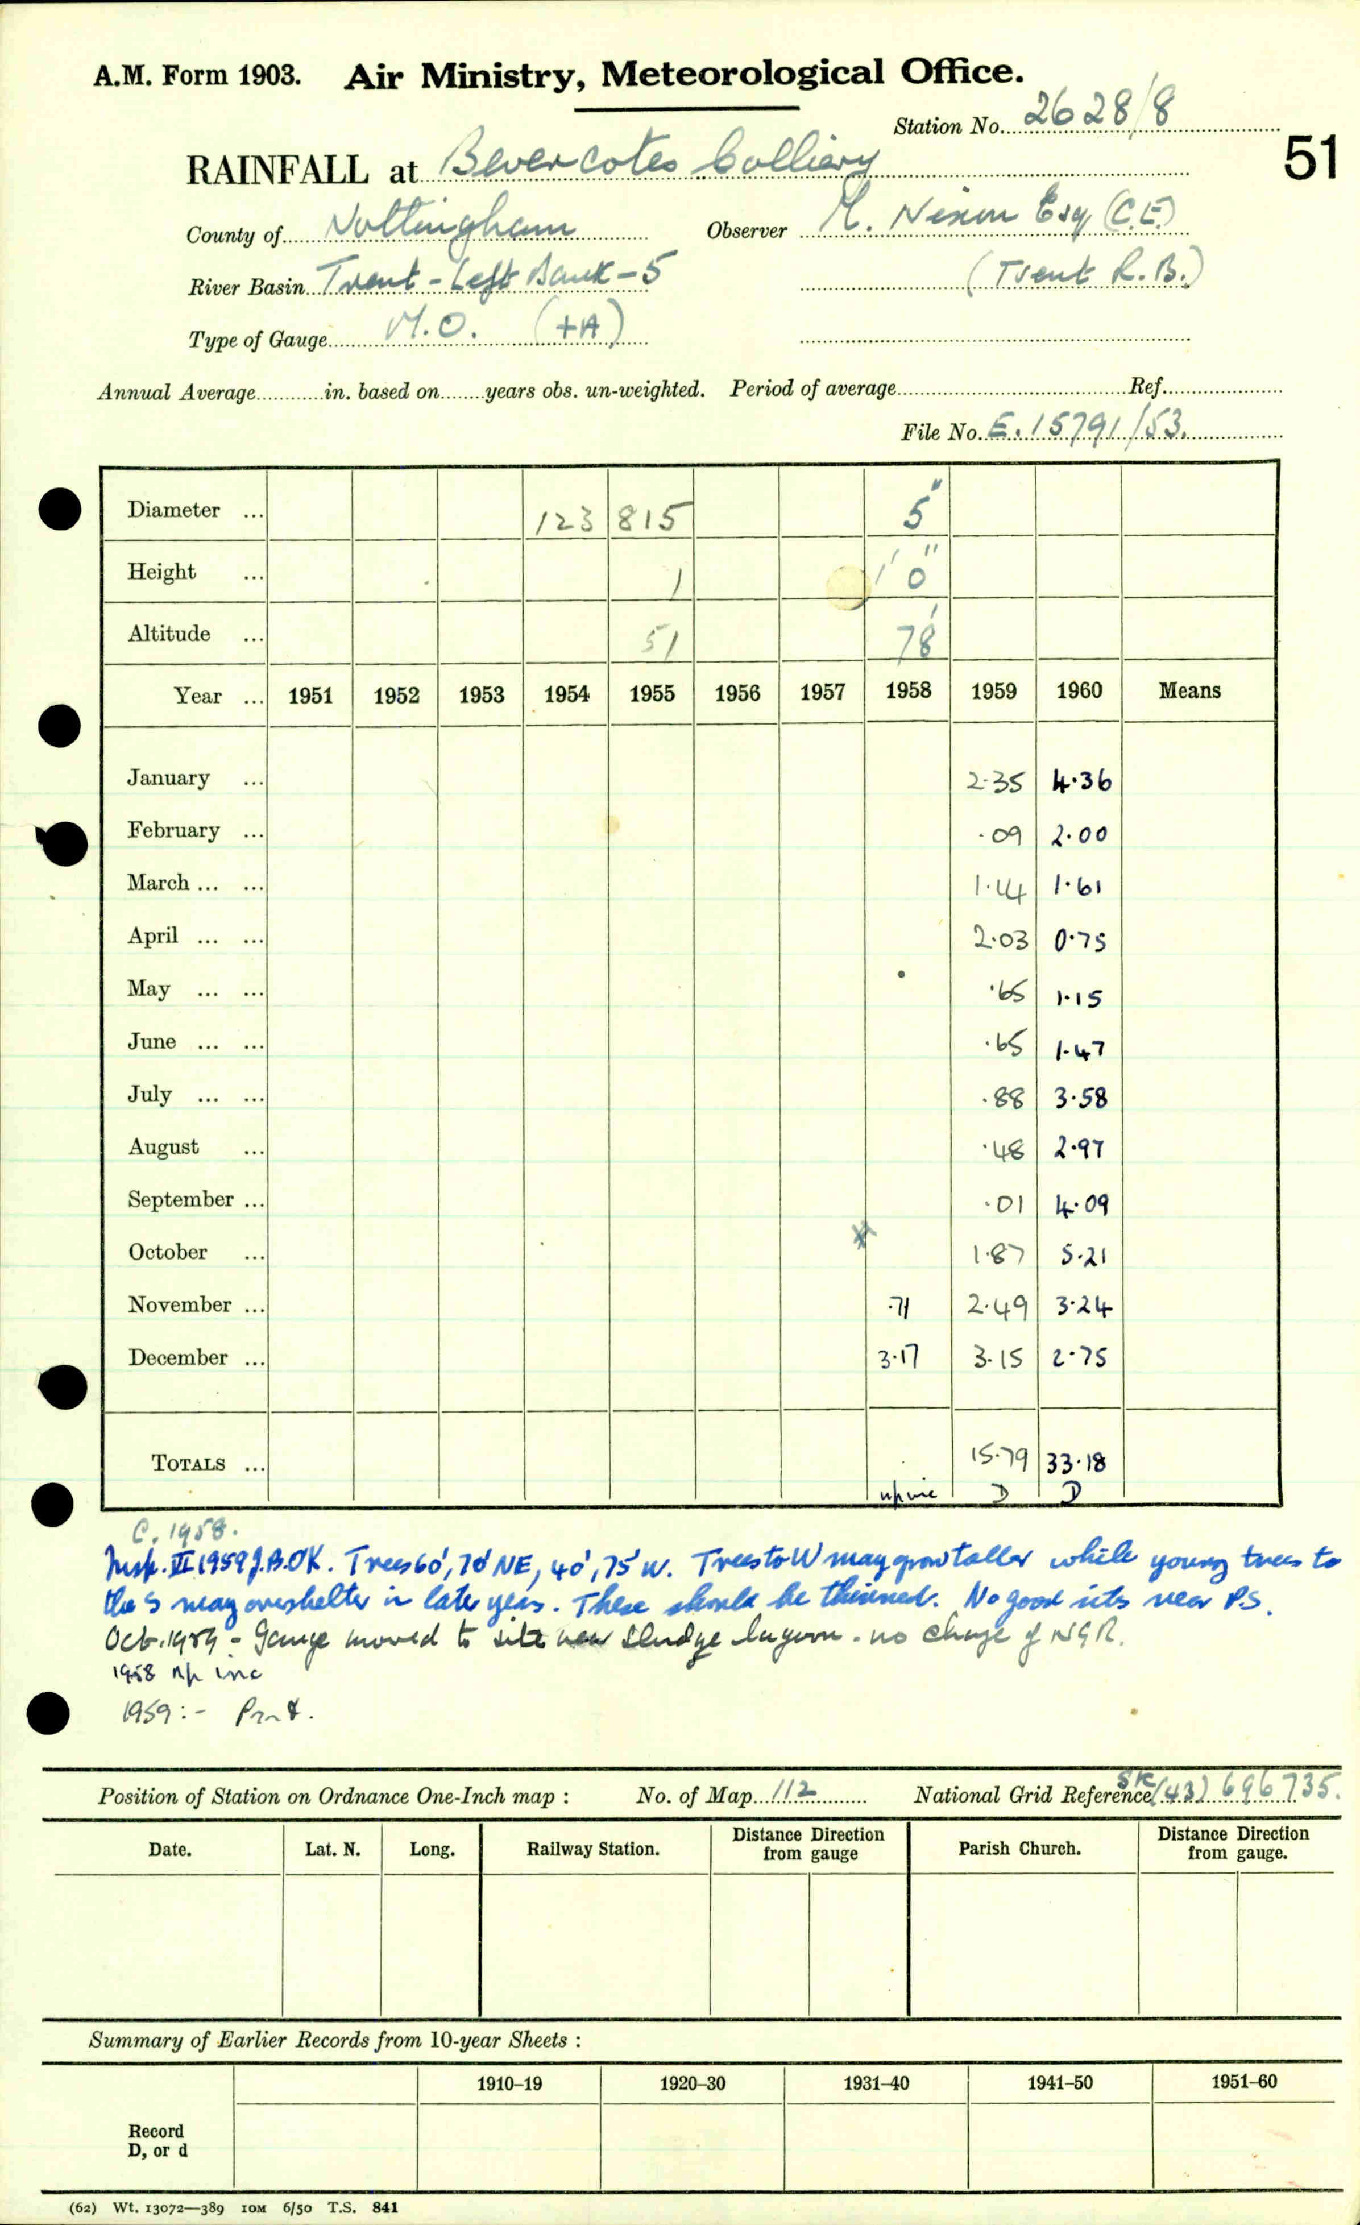 A.M. Form 1903. Air Ministry, Meteorological Office.
Station No. 2628/8
51
RAINFALL at Bevercotes Colliery
County of Nottingham Observer M. Nixon Esq (C.E)
River Basin Trent - Left Bank - 5 (Trent R.B.)
Type of Gauge M.O. (+A)
Annual Average in. based on years obs. un-weighted. Period of average Ref.
File No. E.15791/53.
Diameter ... 123 815 5"
Height ... 1 1' 0"
Altitude ... 51 78'
Year ... 1951 1952 1953 1954 1955 1956 1957 1958 1959 1960 Means
January ... 2.35 4.36
February ... .09 2.00
March ... ... 1.14 1.61
April ... ... 2.03 0.75
May ... ... .65 1.15
June ... ... .65 1.47
July ... ... .88 3.58
August ... .48 2.97
September ... .01 4.09
October ... 1.87 5.21
November ... .71 2.49 3.24
December ... 3.17 3.15 2.75
TOTALS ... 15.79 33.18
np inc D D
C. 1958.
Insp. VI 1959 J.B. OK. Trees 60', 70' NE, 40', 75' W. Trees to W may grow taller while young trees to
the S may overshelter in later years. These should be thinned. No good sites near P.S.
Oct. 1959 - Gauge moved to site near sludge lagoon - no change of NGR.
1958 np inc
1959:-
Position of Station on Ordnance One-Inch map : No. of Map 112 National Grid Reference SK (43) 696735.
Date. Lat. N. Long. Railway Station. Distance Direction from gauge Parish Church. Distance Direction from gauge.
Summary of Earlier Records from 10-year Sheets :
1910–19 1920–30 1931–40 1941–50 1951–60
Record
D, or d
(62) Wt. 13072—389 10M 6/50 T.S. 841